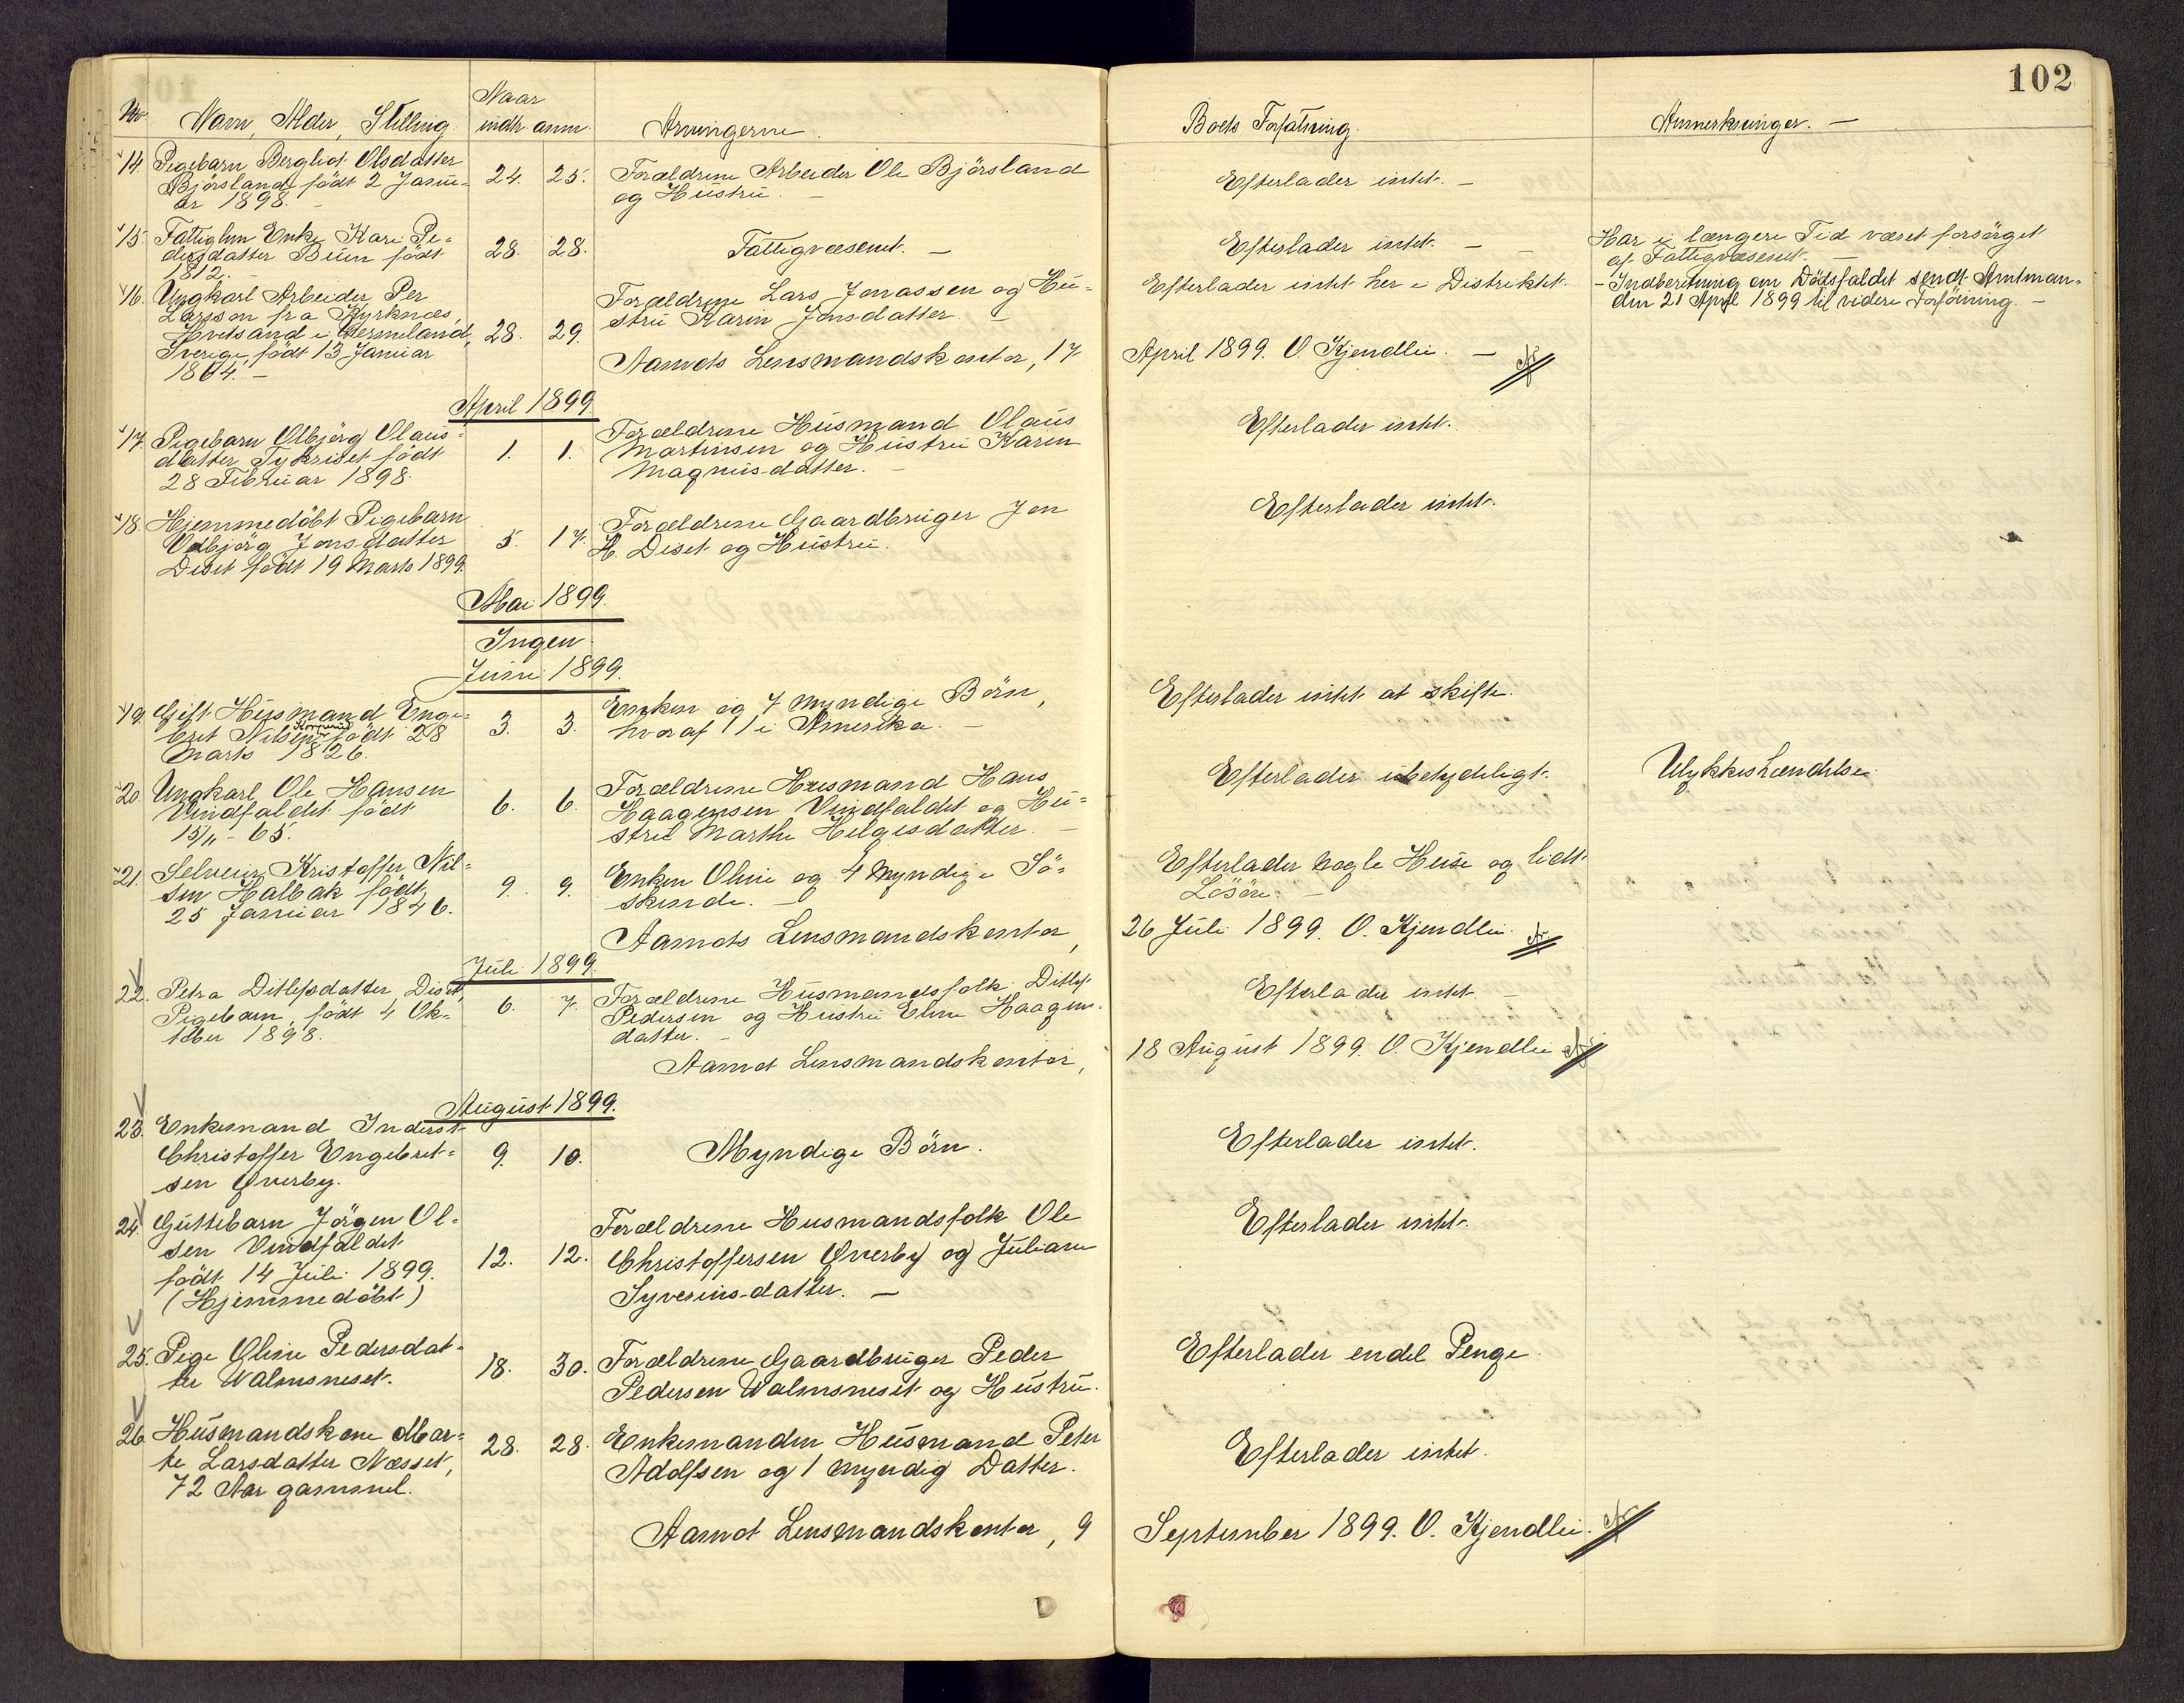 102
No Navn, Alder, Stilling. Naar indtr. anm. Arvingerne. Boets Forfatning. Anmerkninger. —
14. Pigebarn Bergliot Olsdatter
Bjørsland født 2 Janu-
ar 1898. 24. 25. Forældrene Arbeider Ole Bjørsland
og Hustru. — Efterlader intet. —
15. Fattiglem Enke Kari Pe-
dersdatter født
1812. — 28. 28. Fattigvæsenet. — Efterlader intet. — Har i længere Tid været forsørget
af Fattigvæsenet. —
16. Ungkarl Arbeider Per
Larsson fra Kyrknæs,
Hvitsand i Vermland,
Sverige, født 13 Januar
1864. — 28. 29. Forældrene Lars Jonassen og Hu-
stru Karin Jonsdatter. — Efterlader intet her i Distriktet. — Indberetning om Dødsfaldet sendt Amtman-
den 21 April 1899 til videre Forføining. —
Aamots Lensmandskontor, 17 April 1899. O. Kjendlie. —
April 1899.
17. Pigebarn Olbjørg Olaus-
datter Tykriset født
28 Februar 1898. 1. 1. Forældrene Husmand Olaus
Martinsen og Hustru Karen
Magnusdatter. — Efterlader intet.
18. Hjemmedøbt Pigebarn
Valbjørg Jonsdatter
Diset født 19 Marts 1899. 5. 17. Forældrene Gaardbruger Jon
H. Diset og Hustru. Efterlader intet.
Mai 1899.
Ingen
Juni 1899.
19. Gift Husmand Enge-
bret Nilsen født 28
Marts 1826. 3. 3. Enken og 7 myndige Børn,
hvoraf 1 i Amerika. — Efterlader intet at skifte.
20. Ungkarl Ole Hansen
Vindfaldet født
15/11 - 65. 6. 6. Forældrene Husmand Hans
Haagensen Vindfaldet og Hu-
stru Marthe Helgesdatter. — Efterlader ubetydeligt. Ulykkeshændelse.
21. Selveier Kristoffer Nil-
sen Halbak født
25 Januar 1846. 9. 9. Enken Oline og 4 Myndige Sø-
skende. — Efterlader nogle Huse og lidt
Løsøre. —
Aamots Lensmandskontor, 26 Juli 1899. O. Kjendlie.
Juli 1899.
22. Petra Ditlefsdatter Diset,
Pigebarn, født 4 Ok-
tober 1898. 6. 7. Forældrene Husmandsfolk Ditlef
Pedersen og Hustru Eline Haagens-
datter. — Efterlader intet. —
Aamot Lensmandskontor, 18 August 1899. O. Kjendlie
August 1899.
23. Enkemand Inderst
Christoffer Engebret-
sen Øverby. 9. 10. Myndige Børn. Efterlader intet.
24. Guttebarn Jørgen Ol-
sen Vindfaldet
født 14 Juli 1899.
(Hjemmedøbt) 12. 12. Forældrene Husmandsfolk Ole
Christoffersen Øverby og Juliane
Syverinsdatter. — Efterlader intet.
25. Pige Oline Pedersdat-
ter Valmsneset. 18. 30. Forældrene Gaardbruger Peder
Pedersen Valmsneset og Hustru. Efterlader endel Penge.
26. Husmandskone Mar-
te Larsdatter Næsset,
72 Aar gammel. 28. 28. Enkemanden Husmand Peter
Adolfsen og 1 myndig Datter. Efterlader intet.
Aamot Lensmandskontor, 9 September 1899. O. Kjendlie.